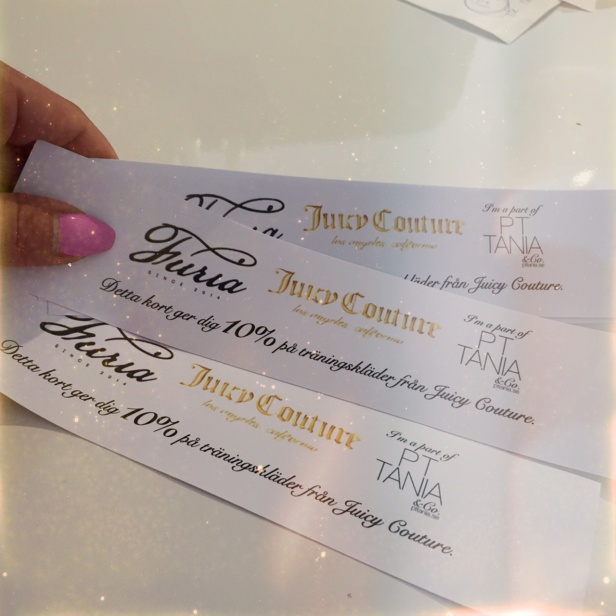 Juicy Couture
los angeles california
I'm a part of
PT
TANIA
&Co.
kläder från Juicy Couture.
Furia
Juicy Couture
los angeles california
I'm a part of
PT
TANIA
&Co.
Detta kort ger dig 10% på träningskläder från Juicy Couture.
Furia
Juicy Couture
los angeles california
I'm a part of
PT
TANIA
&Co.
Detta kort ger dig 10% på träningskläder från Juicy Couture.